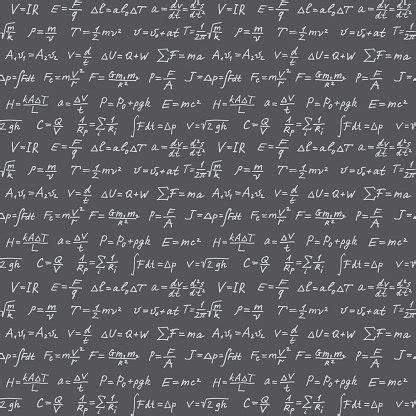 V=IR E=F/q Δl=αl₀ΔT a=dv/dt=d²s/dt² V=IR E=F/q Δl=αl₀ΔT a=dv/dt=d²s/dt²
√m/k ρ=m/v T=½mv² v=v₀+at T=1/2π √m/k ρ=m/v T=½mv² v=v₀+at T=1/2π
A₁v₁=A₂v₂ V=d/t ΔU=Q+W ∑F=ma A₁v₁=A₂v₂ V=d/t ΔU=Q+W ∑F=ma
Δp=∫Fdt Fc=mv²/r F=Gm₁m₂/r² P=F/A J=Δp=∫Fdt Fc=mv²/r F=Gm₁m₂/r² P=F/A J=
H=kAΔT/L a=ΔV/t P=P₀+ρgh E=mc² H=kAΔT/L a=ΔV/t P=P₀+ρgh E=mc²
√2gh C=Q/V 1/Rp=∑1/Ri ∫Fdt=Δp V=√2gh C=Q/V 1/Rp=∑1/Ri ∫Fdt=Δp V=
V=IR E=F/q Δl=αl₀ΔT a=dv/dt=d²s/dt² V=IR E=F/q Δl=αl₀ΔT a=dv/dt=d²s/dt²
√m/k ρ=m/v T=½mv² v=v₀+at T=1/2π √m/k ρ=m/v T=½mv² v=v₀+at T=1/2π
A₁v₁=A₂v₂ V=d/t ΔU=Q+W ∑F=ma A₁v₁=A₂v₂ V=d/t ΔU=Q+W ∑F=ma
Δp=∫Fdt Fc=mv²/r F=Gm₁m₂/r² P=F/A J=Δp=∫Fdt Fc=mv²/r F=Gm₁m₂/r² P=F/A J=
H=kAΔT/L a=ΔV/t P=P₀+ρgh E=mc² H=kAΔT/L a=ΔV/t P=P₀+ρgh E=mc²
√2gh C=Q/V 1/Rp=∑1/Ri ∫Fdt=Δp V=√2gh C=Q/V 1/Rp=∑1/Ri ∫Fdt=Δp V=
V=IR E=F/q Δl=αl₀ΔT a=dv/dt=d²s/dt² V=IR E=F/q Δl=αl₀ΔT a=dv/dt=d²s/dt²
√m/k ρ=m/v T=½mv² v=v₀+at T=1/2π √m/k ρ=m/v T=½mv² v=v₀+at T=1/2π
A₁v₁=A₂v₂ V=d/t ΔU=Q+W ∑F=ma A₁v₁=A₂v₂ V=d/t ΔU=Q+W ∑F=ma
Δp=∫Fdt Fc=mv²/r F=Gm₁m₂/r² P=F/A J=Δp=∫Fdt Fc=mv²/r F=Gm₁m₂/r² P=F/A J=
H=kAΔT/L a=ΔV/t P=P₀+ρgh E=mc² H=kAΔT/L a=ΔV/t P=P₀+ρgh E=mc²
√2gh C=Q/V 1/Rp=∑1/Ri ∫Fdt=Δp V=√2gh C=Q/V 1/Rp=∑1/Ri ∫Fdt=Δp V=